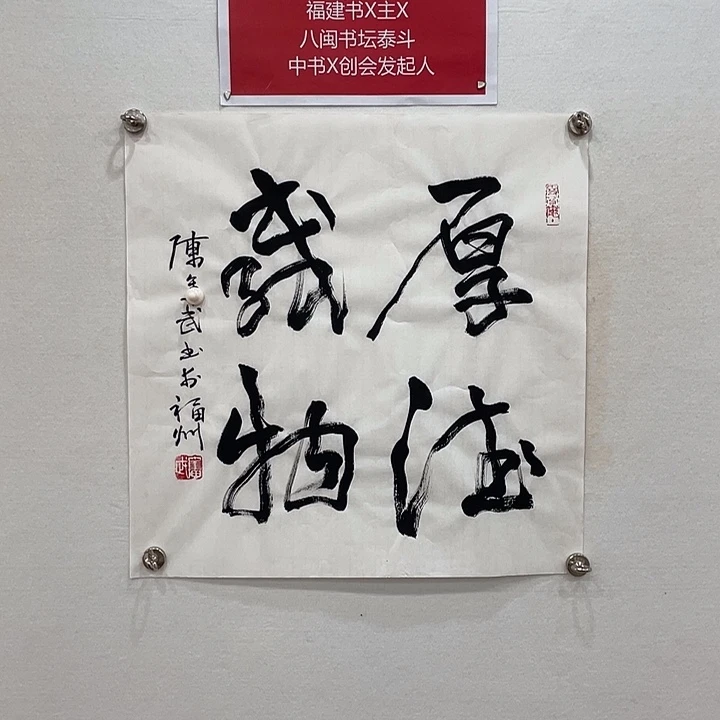 福建书X主X
八闽书坛泰斗
中书X创会发起人
厚德
载物
陳 武书于福州